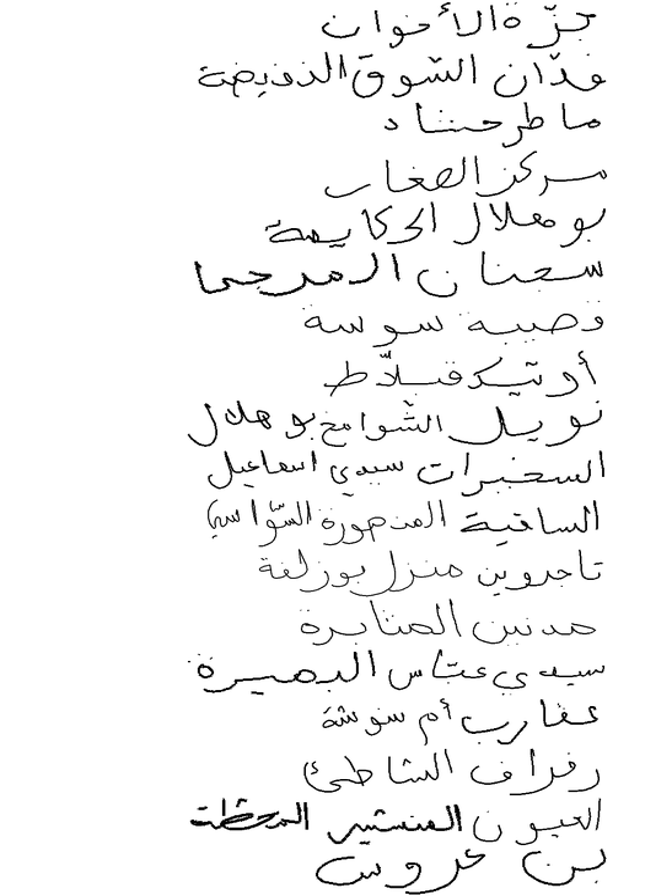 جزّة الأخوان
فدّان السّوق النفيضة
ماطر حشاد
مركز الصغار
بوهلال الحكايمة
سجنان المرجى
قصيبة سوسة
أوتيك قبلاّط
نويل الشّوامخ بوهلال
السخيرات سيدي اسماعيل
الساقية المنصورة السّواسي
تاجروين منزل بوزلفة
مدنين
سيدي عبّاس
عقارب أم سوشة
رفراف الشاطئ
العيون المنستير المحطّة
بن عروس